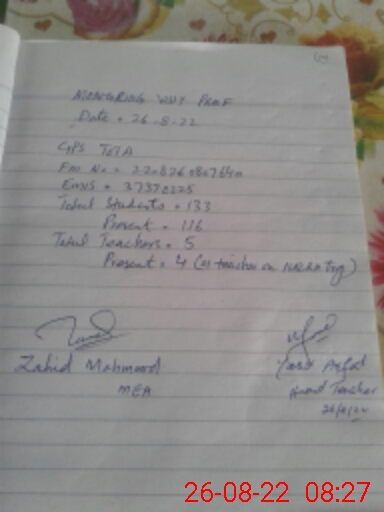 MONITORING VISIT PROF
Date = 26-8-22
GPS TOTA
EMIS = 37370225
Total Students = 133
Present = 116
Total Teachers = 5
Present = 4 (01 teacher on
Zahid Mahmood
MEA
Yasir Arfat
Head Teacher
26-08-22 08:27